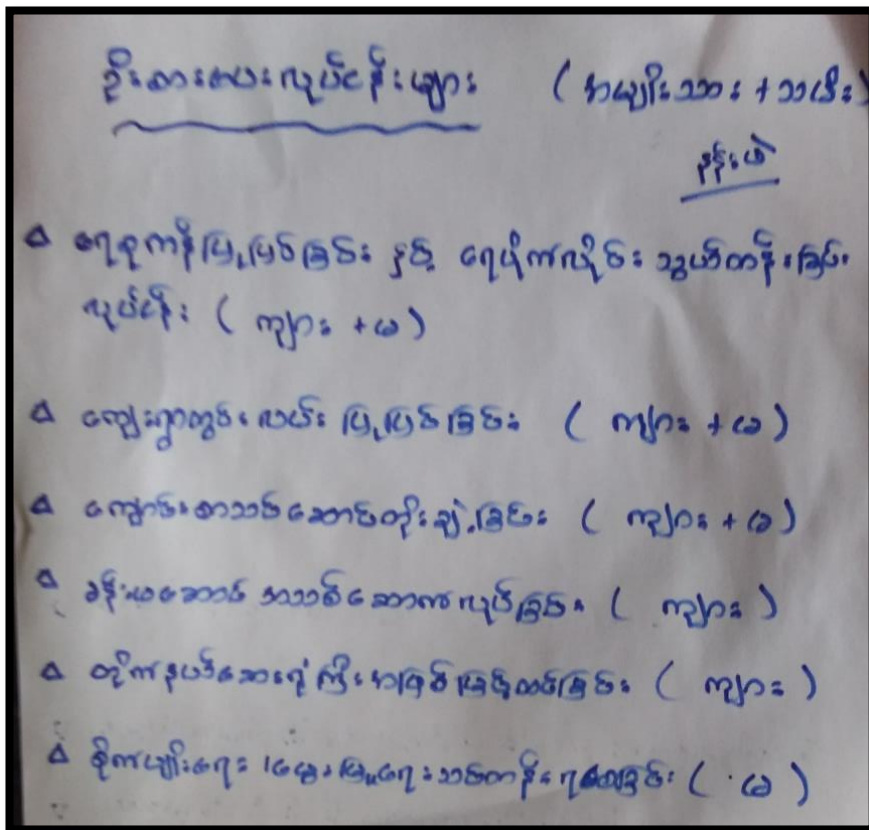 ဦးစားပေးလုပ်ငန်းများ (အမျိုးသား + သမီး)
နန်းဖဲ
△ ရေစုကန်ပြုပြင်ခြင်း နှင့် ရေပိုက်လိုင်း သွယ်တန်းခြင်း
လုပ်ငန်း (ကျား + မ)
△ ကျေးရွာတွင်းလမ်း ပြုပြင်ခြင်း (ကျား + မ)
△ ကျောင်းစာသင်ဆောင်တိုးချဲ့ခြင်း (ကျား + မ)
△ ခန်းမဆောင် အသစ်ဆောက်လုပ်ခြင်း (ကျား)
△ တိုက်နယ်ဆေးရုံကြီးအဖြစ်မြှင့်တင်ခြင်း (ကျား)
△ စိုက်ပျိုးရေး မွေးမြူရေးသင်တန်းရရှိခြင်း (မ)